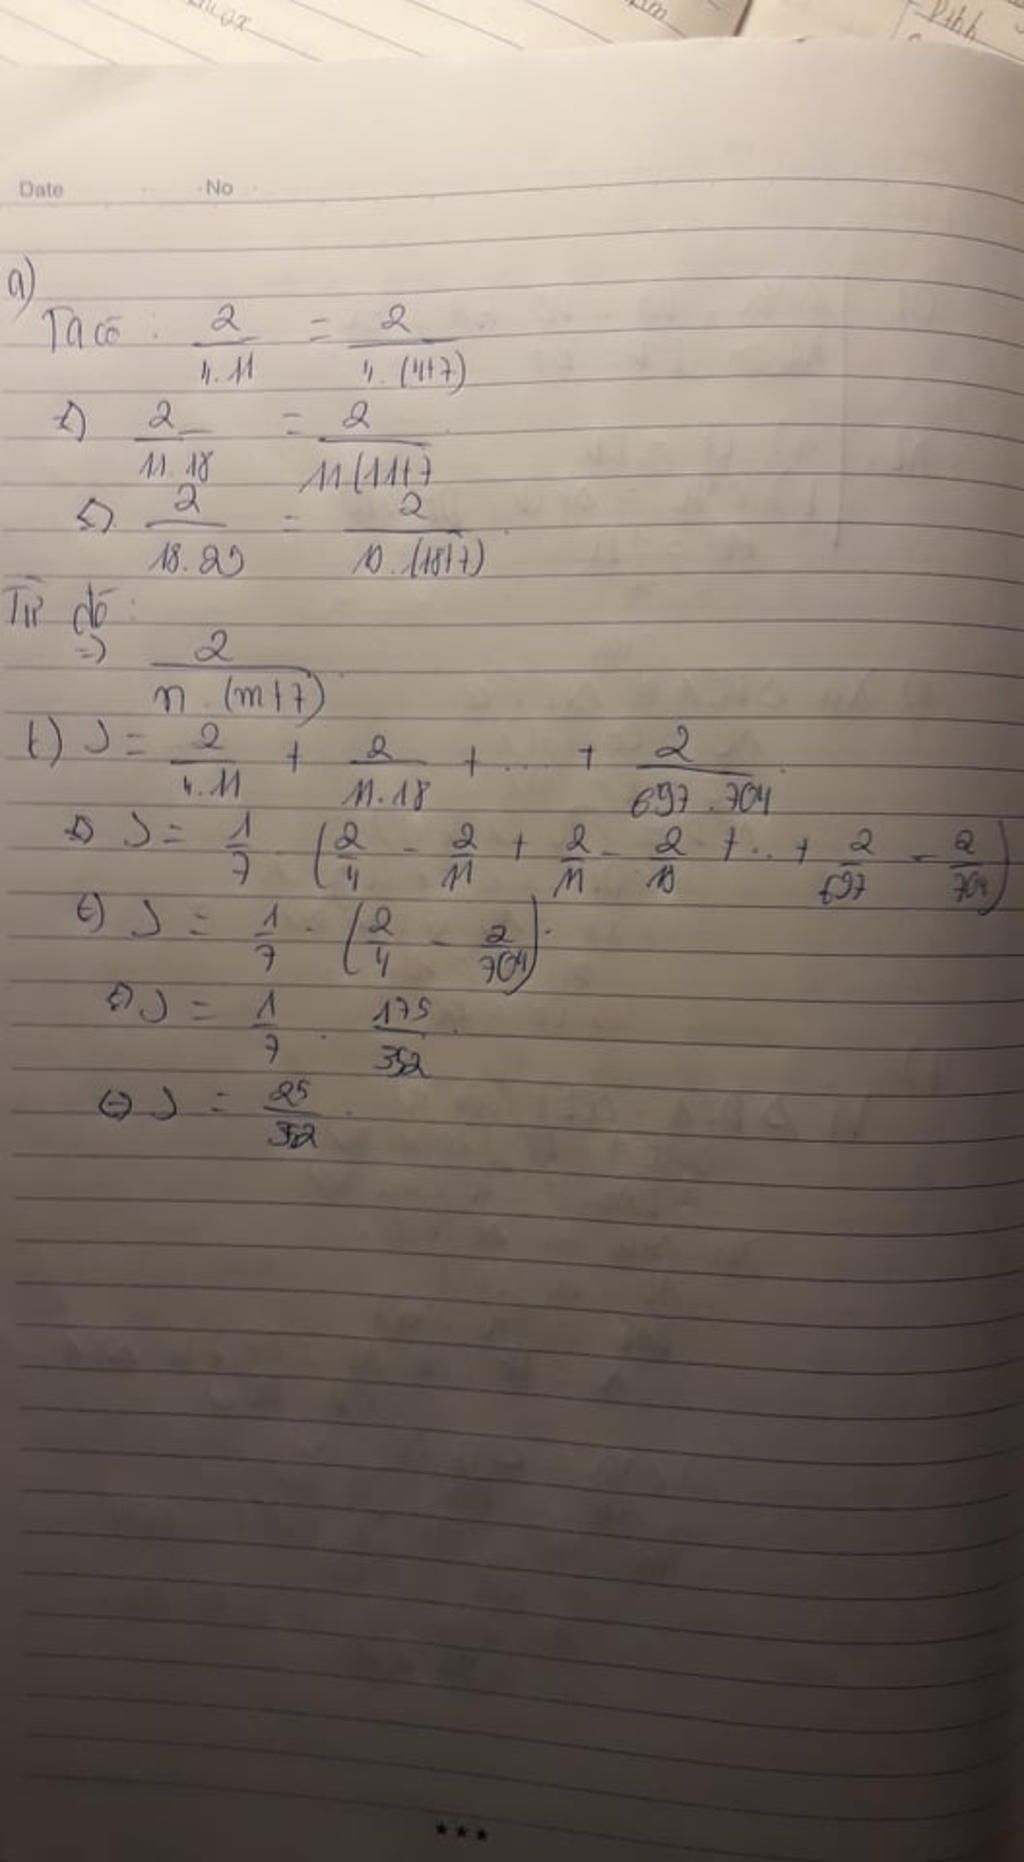 Date No
a)
Ta có : 2/4.11 = 2/4.(4+7)
2/11.18 = 2/11(11+7
2/18.25 = 2/18.(18+7)
Từ đó :
=> 2/n.(n+7)
J = 2/4.11 + 2/11.18 + ... + 2/697.704
J = 1/7 . (2/4 - 2/11 + 2/11 - 2/18 + .. + 2/697 - 2/704)
J = 1/7 . (2/4 - 2/704)
J = 1/7 . 175/352
<=> J = 25/352
***